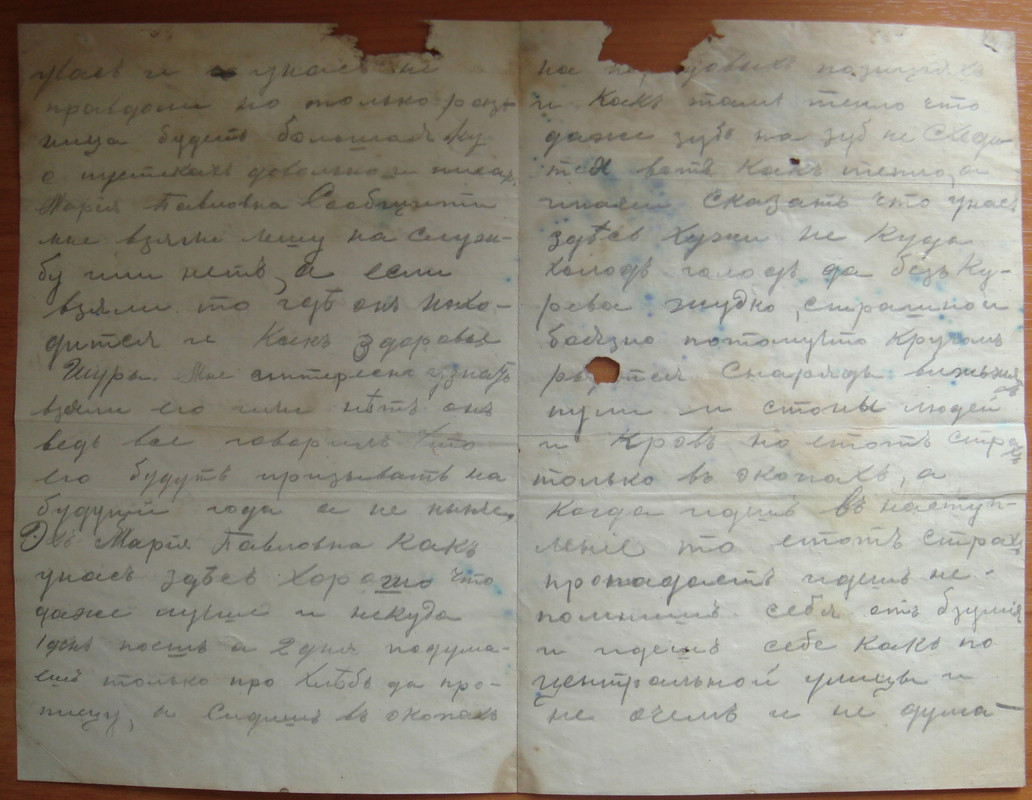 унасъ и унасъ не
правдани но только разъ
ница будетъ большая Ну
о пустякахъ довольно и писать
Марія Павловна Сообщите
мне взяли Мишу на служ-
бу или нетъ, а если
взяли то где онъ нахо-
дится и Какъ Здаровья
Шуры. Мне интересно узнать
взяли его или нѣтъ онъ
ведь все говорилъ что
его будутъ призывать на
будущй года а не ныне,
Эхъ Марія Павловна Какъ
унасъ здѣсь Хорошо что
даже лучше и некуда
1 день поешь а 2 дня подума-
ешь только про хлѣбъ да про-
пищу, и Сидишь въ окопахъ
на позицiяхъ
и Какъ тамъ тепло что
даже зубъ на зубъ не Сходи-
тся вотъ Какъ тепло, а
Сказать что унасъ
здѣсь Хужи не Куда
холодъ голодъ да безъ Ку-
рева жудко, страшной
боязно потомучто Кругомъ
рвутся Снаряды визжжя
пули и стоны людей
и Кровь но етотъ стра
хъ
только въ окопахъ, а
Когда идешь въ наступ-
ление то етотъ страхъ
пропадаетъ идешь не-
помнишь себя отъ бзумiя
и идешь себе какъ по
центральной улицы и
не очемъ и не дума-